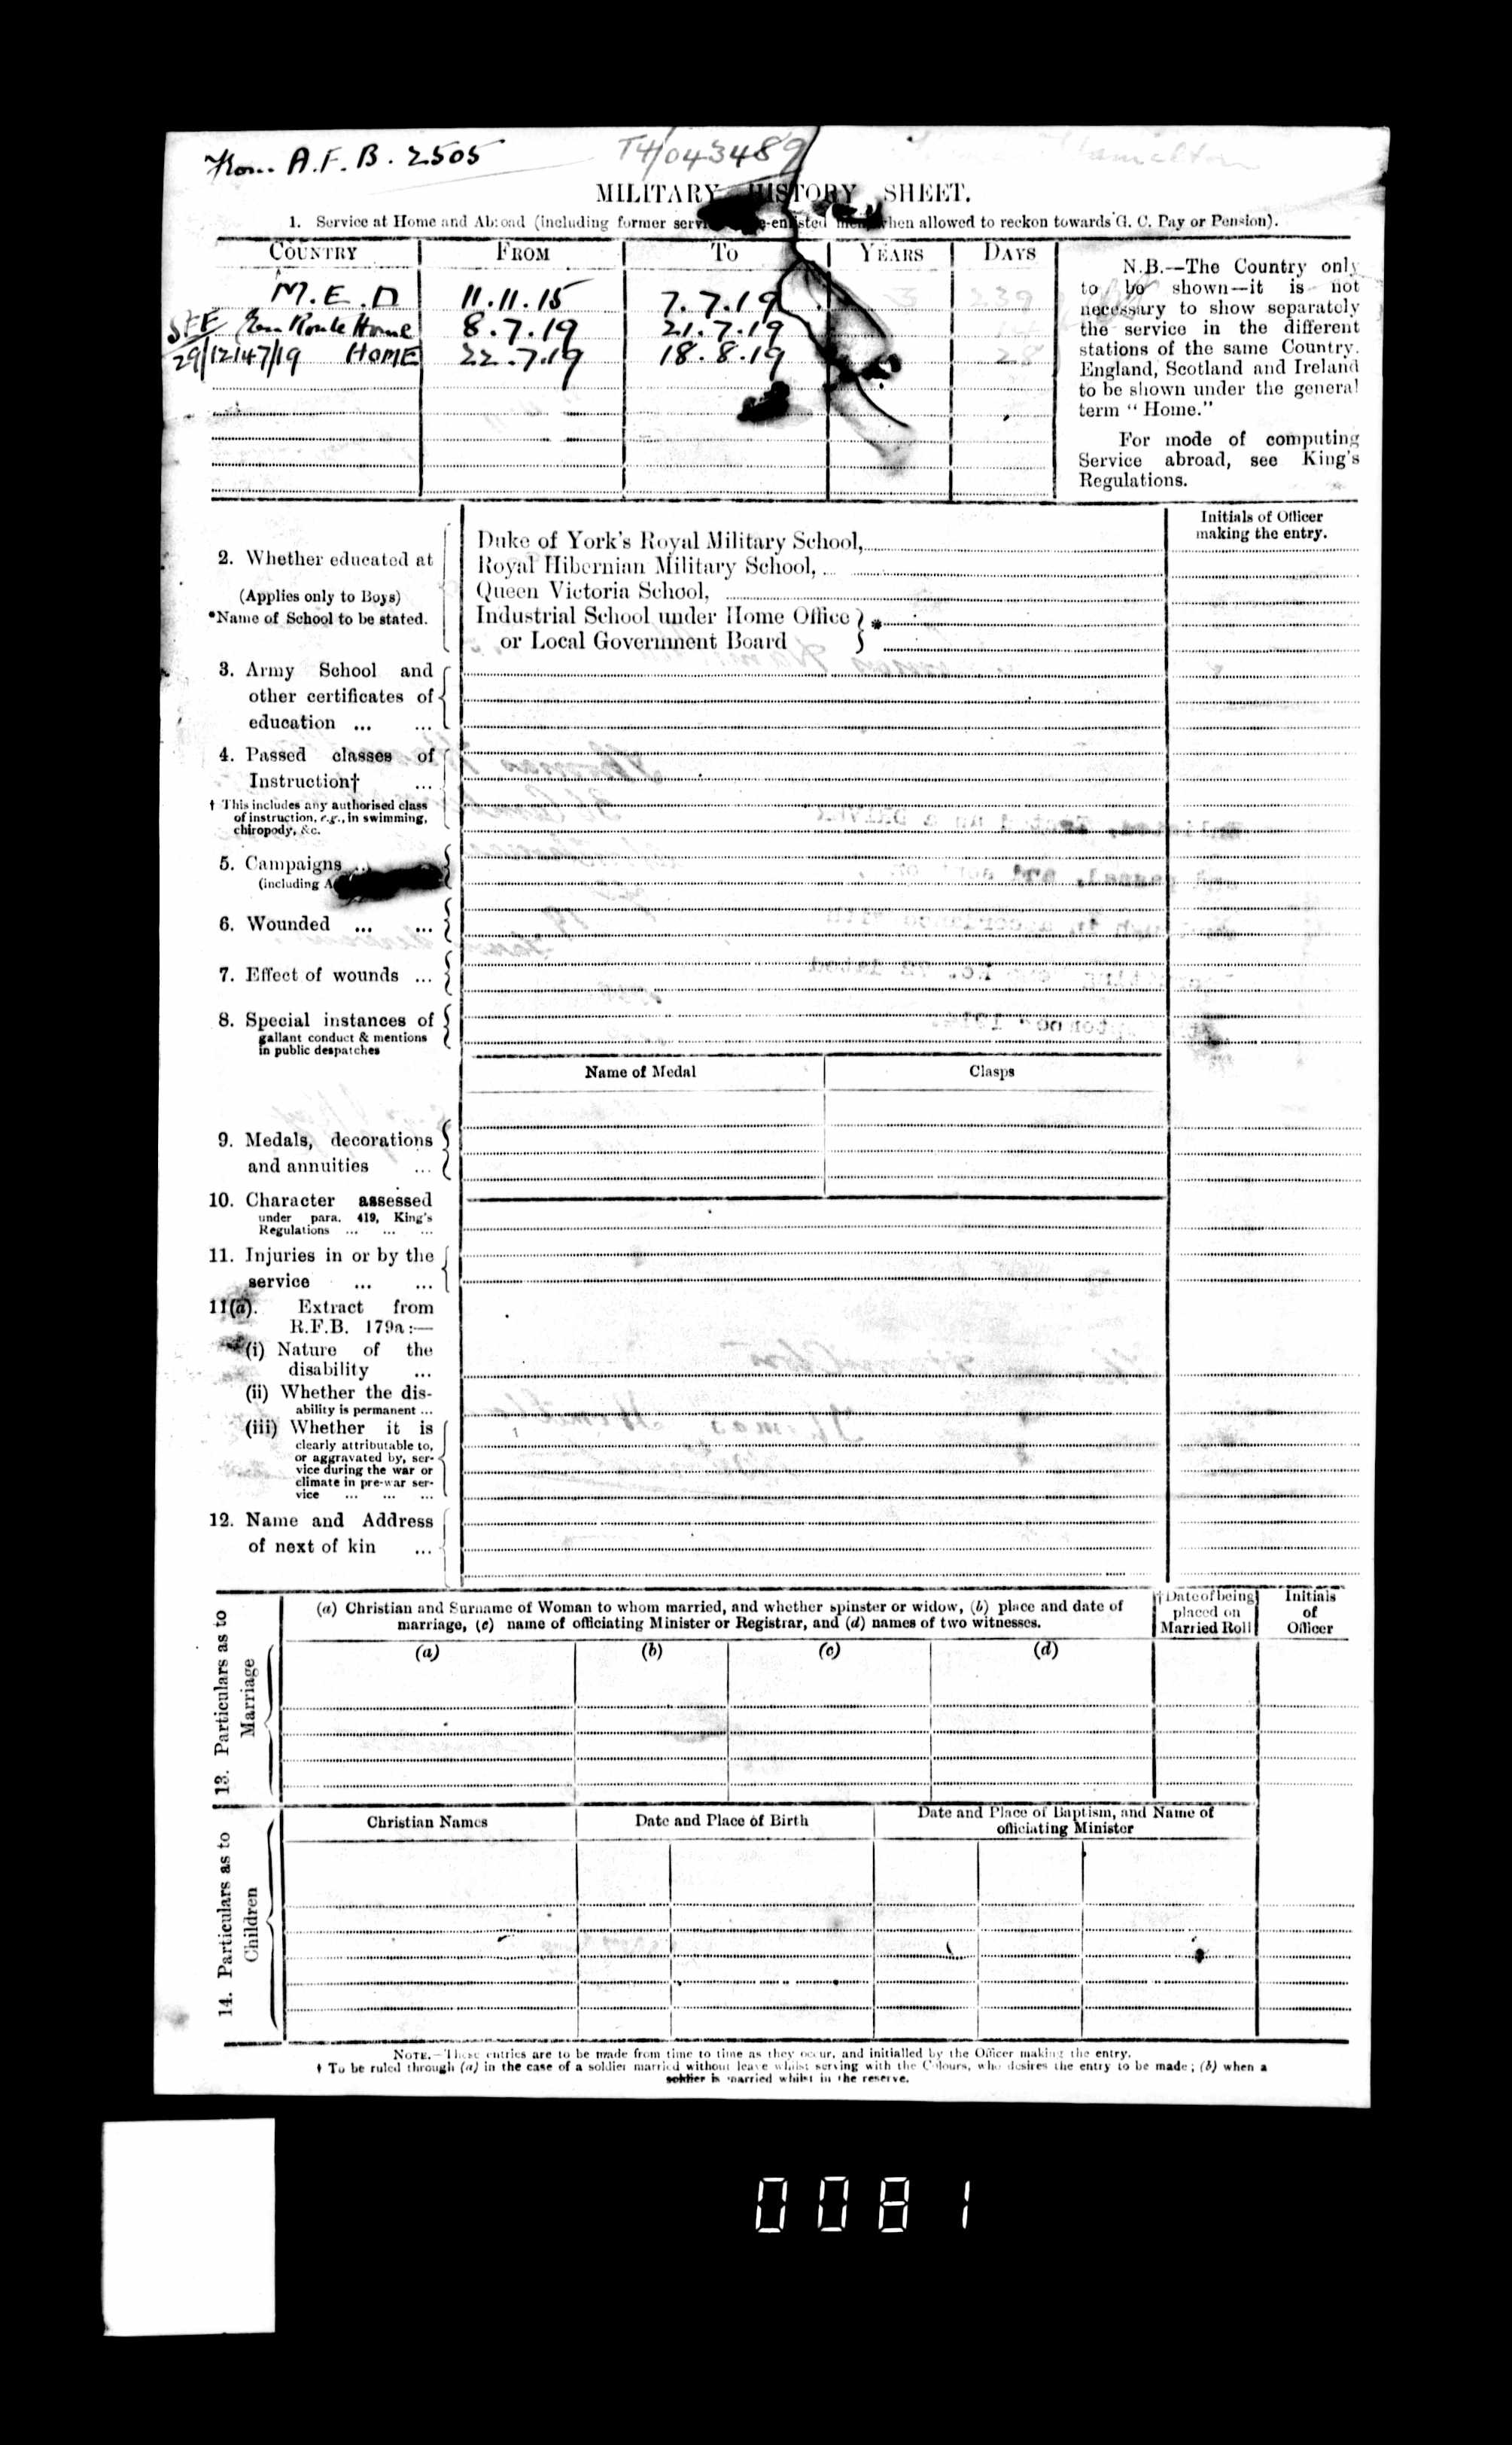 From A.F.B. 2505
T4/043489
Hamilton
MILITARY HISTORY SHEET.
1. Service at Home and Abroad (including former service when allowed to reckon towards G. C. Pay or Pension).
COUNTRY FROM TO YEARS DAYS
M.E.D 11.11.15 7.7.19 3 239
SEE En Route Home 8.7.19 21.7.19
29/12147/19 HOME 22.7.19 18.8.19 28
N.B.—The Country only
to be shown—it is not
necessary to show separately
the service in the different
stations of the same Country.
England, Scotland and Ireland
to be shown under the general
term "Home."
For mode of computing
Service abroad, see King's
Regulations.
Initials of Officer
making the entry.
2. Whether educated at
(Applies only to Boys)
*Name of School to be stated.
Duke of York's Royal Military School,
Royal Hibernian Military School, ...
Queen Victoria School,
Industrial School under Home Office } *
or Local Government Board }
3. Army School and
other certificates of
education ... ...
4. Passed classes of
Instruction† ...
† This includes any authorised class
of instruction, e.g., in swimming,
chiropody, &c.
5. Campaigns ...
(including
6. Wounded ... ...
7. Effect of wounds ...
8. Special instances of
gallant conduct & mentions
in public despatches
Name of Medal Clasps
9. Medals, decorations
and annuities ...
10. Character assessed
under para. 419, King's
Regulations ... ... ...
11. Injuries in or by the
service ... ...
11(a). Extract from
R.F.B. 179a:—
(i) Nature of the
disability ...
(ii) Whether the dis-
ability is permanent ...
(iii) Whether it is
clearly attributable to,
or aggravated by, ser-
vice during the war or
climate in pre-war ser-
vice ... ... ...
12. Name and Address
of next of kin ...
13. Particulars as to
Marriage
(a) Christian and Surname of Woman to whom married, and whether spinster or widow, (b) place and date of
marriage, (c) name of officiating Minister or Registrar, and (d) names of two witnesses.
† Date of being
placed on
Married Roll
Initials
of
Officer
(a) (b) (c) (d)
14. Particulars as to
Children
Christian Names Date and Place of Birth Date and Place of Baptism, and Name of
officiating Minister
NOTE.—These entries are to be made from time to time as they occur, and initialled by the Officer making the entry.
† To be ruled through (a) in the case of a soldier married without leave whilst serving with the Colours, who desires the entry to be made; (b) when a
soldier is married whilst in the reserve.
0081